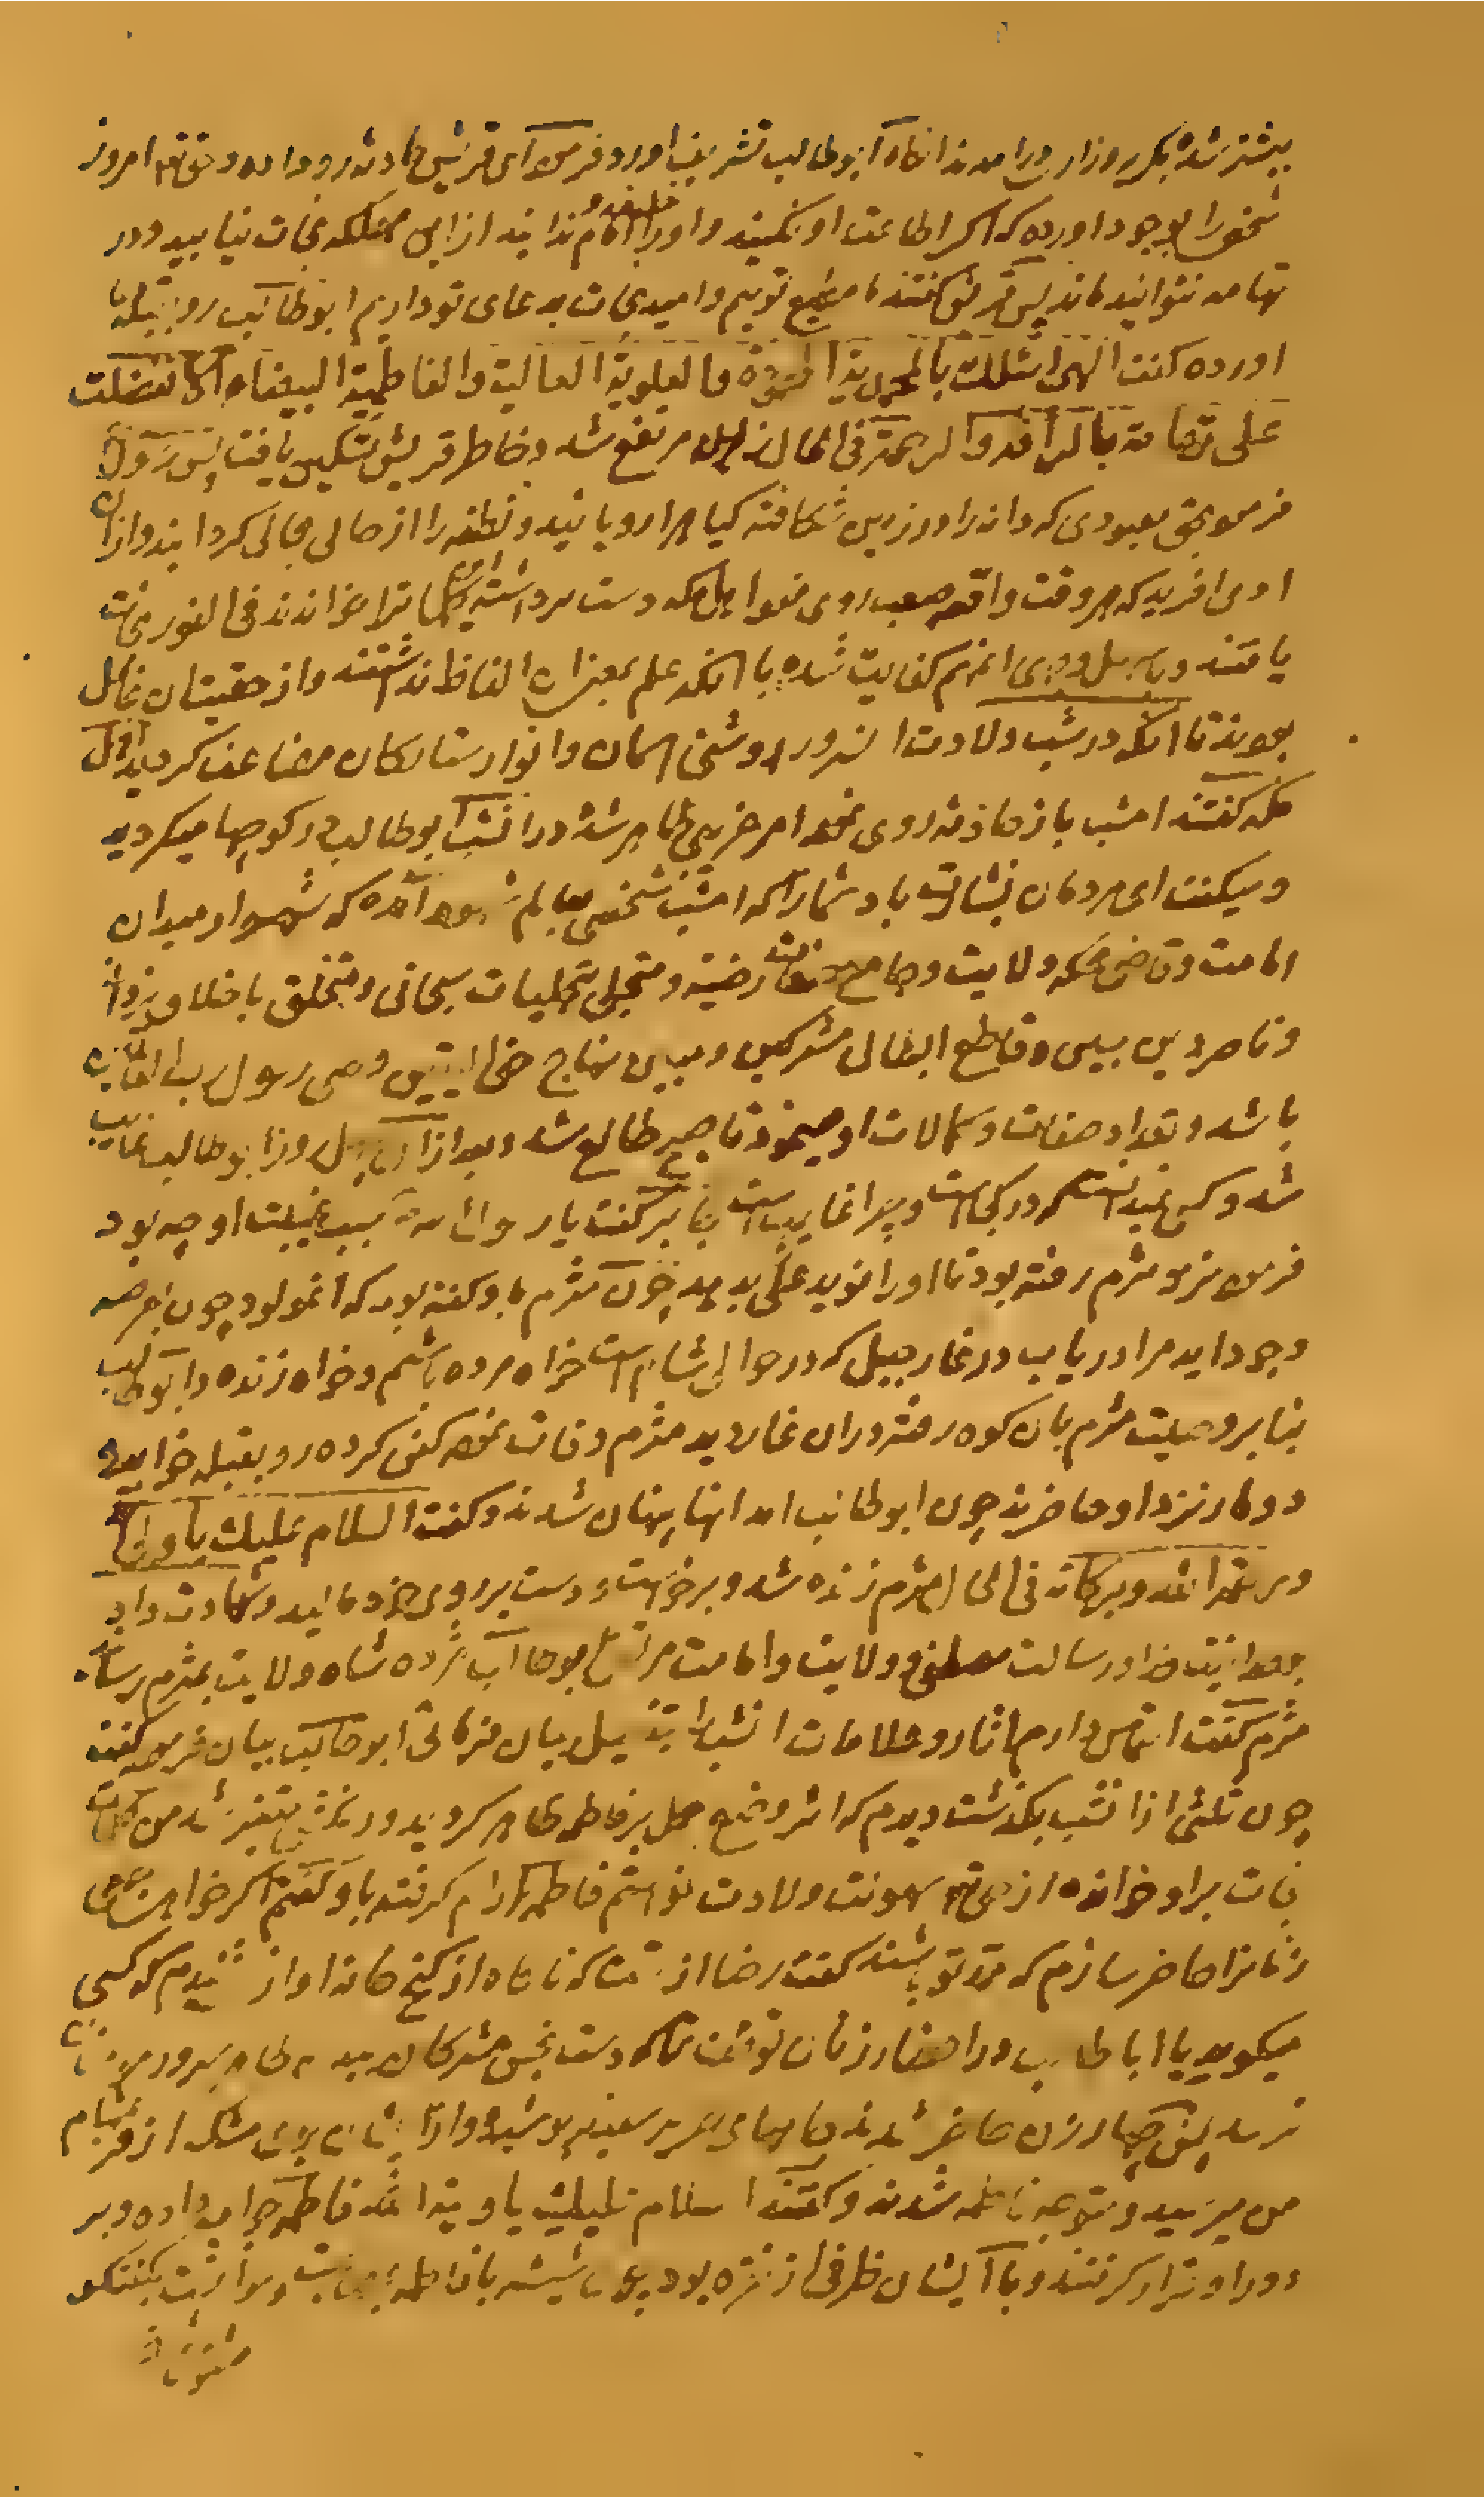 بیشتر شد بکریه و زاری درامدند انکاه ابوطالب تشریف اورد و فرمود ای قریش حادثه رو داده و حق تعم امروز
شخصی را بوجود اورده که اکر اطاعت او نکنید و او را خلیفه و امام ندانید ازین مهلکه نجات نیابید و در
تهامه نتوانید ماند پس قریش کفتند ما مطیع توییم و امید نجات بدعای تو داریم ابوطالب رو بقبله
اورده کفت الهی اسئلک بالمحمدیة المحمودة و العلویة العالیة و الفاطمیة البیضاء الا تفضلت
علی تهامة بالرافة و الرحمة فی الحال زلزله مرتفع شد و خاطر قریش تسکین یافت پس رسول
فرمود بحق معبودی که دانه را در زمین شکافته کیاه را رویانید و نطفه را از حالی بحالی کردانید و ازان
ادمی افرید که هر وقت واقعه صعب روی نمود اهل مکه دست برداشته این کلماترا خواندند فی الفور نجات
یافتند و انهم کفایت شد با انکه علم بمعنی ان الفاظ نداشتند و از حقیقتان غافل
بودند تا انکه در شب ولادت انسرور روشنی اسمان و انوار ستارکان مضاعف کردید اهل
مکه کفتند امشب باز حادثه روی نمود امر غریبی ظاهر شد و در انشب ابوطالب در کوچها میکردید
و میکفت ای مردمان بشارت باد شمارا که امشب شخصی بعالم شهود آمده که شهسوار میدان
امامت و قاضی محکمه ولایت و جامع صفات رضیة و متجلی بتجلیات سبحانی و متخلق باخلاق یزدانی
و ناصر دین مبین و قاطع ابطال مشرکین و مبین منهاج حق الیقین وصی رسول رب العالمین
باشد و تعداد صفات و کمالات او مینمود تا صبح طالع شد و بعد ازان چهل روز ابوطالب غایب
شد و کسی نمیدانست که در کجاست و چرا غایب است جابر کفت یا رسول الله سبب غیبت او چه بود
فرمود نزد مثرم رفته بود تا او را نوید علی بدهد چون مثرم باو کفته بود که انمولود چون بعرصه
وجود اید مرا دریاب در غار جبیل که در حوالی شام است خواه مرده باشم و خواه زنده و ابوطالب
بنا بر وصیت مثرم بان کوه رفته دران غار دید مثرم وفات نموده کفن کرده رو بقبله خوابیده
دو مار نزد او حاضرند چون ابوطالب امد انها پنهان شدند و کفت السلام علیک یا ولی الله
و رحمة الله و برکاته فی الحال مثرم زنده شد و برخاست و دست بر روی خود مالید و شهادت داد
بوحدانیت خدا و رسالت مصطفی و ولایت و امامت مرتضی ابوطالب مژده شاه ولایت بمثرم رساند
مثرم کفت التماس دارم اثار و علامات انشبرا بتفصیل بیان فرمائی ابوطالب بیان فرمود کفت
چون ثلثی از انشب بکذشت دیدم که اثر وضع حمل بر فاطمه ظاهر کردید و رنکش متغیر شد من کلمات
نجات بر او خوانده از حق تعم سهولت ولادت خواستم فاطمه ارام کرفته باو کفتم اکر خواهی
زنانرا حاضر سازم که نزد تو باشند کفت رضا از تست که ناکاه از کنج خانه اواز شنیدم که کسی
میکوید یا اباطالب در احضار زنان توقف نما که دست نجس مشرکان
نرسد پس چهار زن حاضر شدند جامهای حریر سفید پوشیده و از ایشان بوی مشک از فر بمشام
من میرسید و متوجه فاطمه شدند و کفتند السلام علیک یا ولیة الله فاطمه جواب داده و بر
دور او قرار کرفتند و با ایشان ظرفی از نقره بود